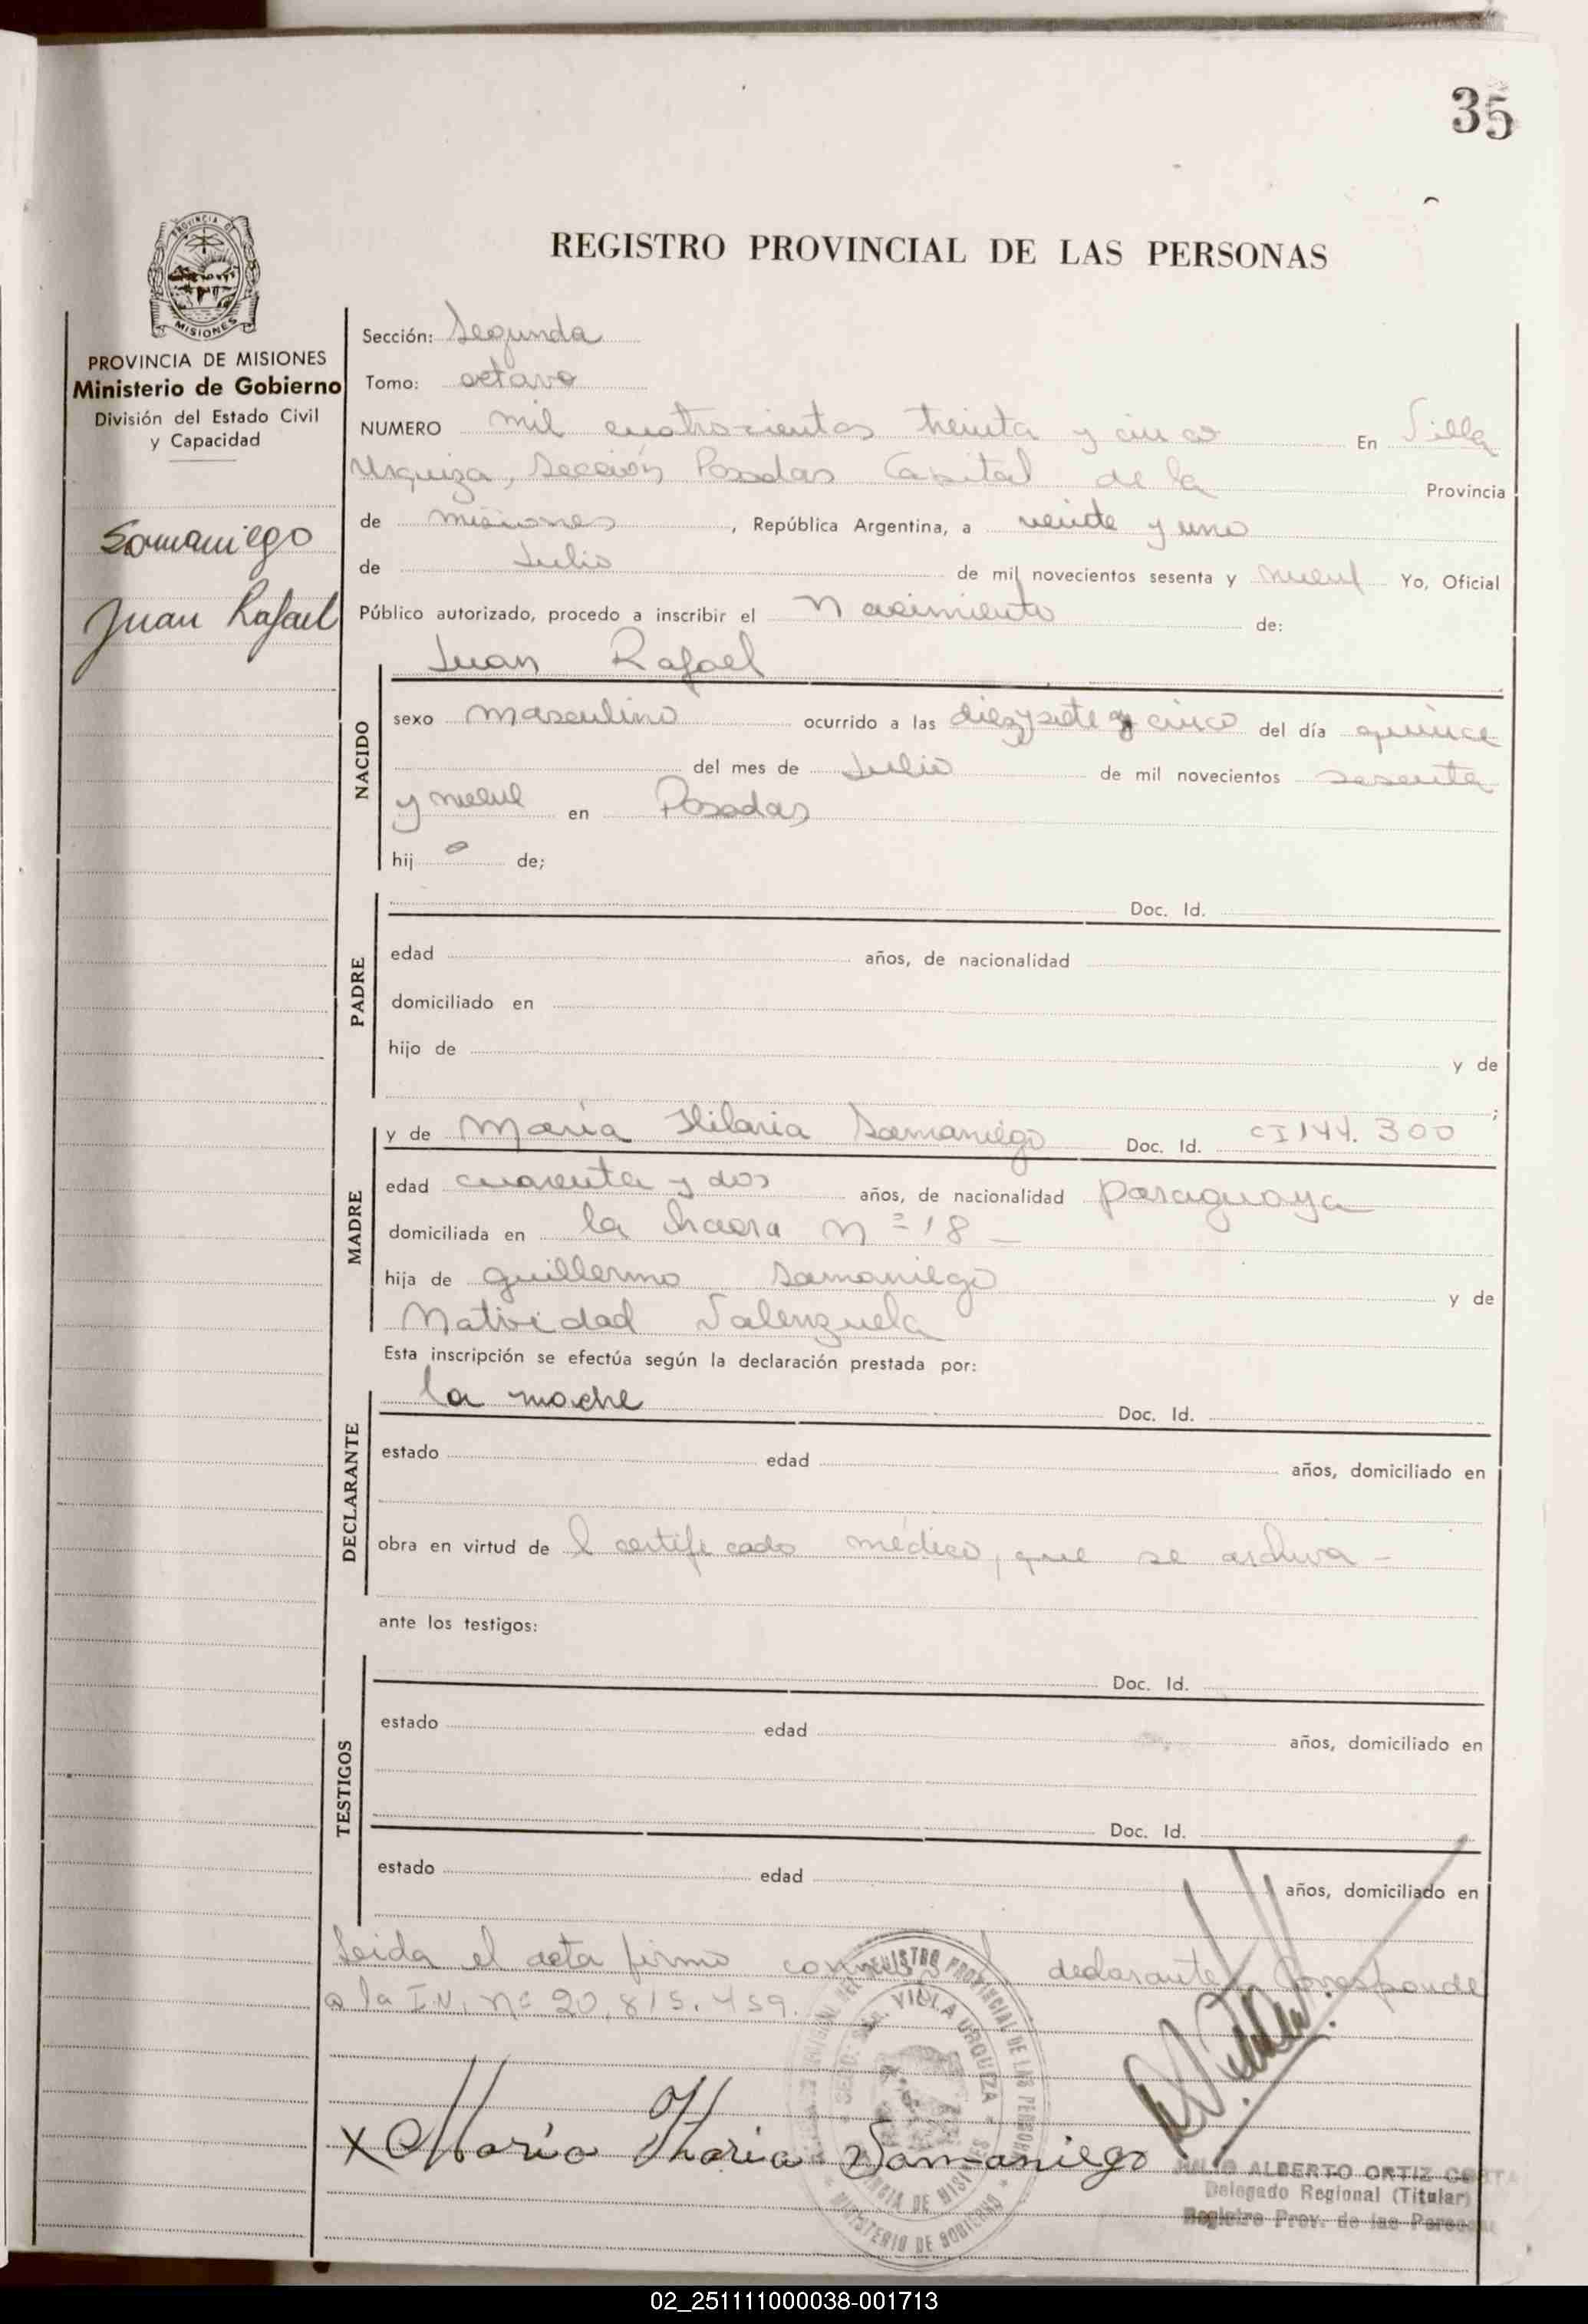 35
PROVINCIA DE
MISIONES
REGISTRO PROVINCIAL DE LAS PERSONAS
PROVINCIA DE MISIONES
Ministerio de Gobierno
División del Estado Civil
y Capacidad
Samaniego
Juan Rafael
Sección: Segunda
Tomo: octavo
NUMERO mil cuatrocientos treinta y cinco En Villa
Urquiza, Sección Posadas Capital de la Provincia
de misiones, República Argentina, a veinte y uno
de Julio de mil novecientos sesenta y nueve Yo, Oficial
Público autorizado, procedo a inscribir el Nacimiento de:
Juan Rafael
NACIDO
sexo masculino ocurrido a las diez y siete y cinco del día quince
del mes de Julio de mil novecientos sesenta
y nueve en Posadas
hijo de;
PADRE
Doc. Id.
edad años, de nacionalidad
domiciliado en
hijo de y de
;
MADRE
y de María Hilaria Samaniego Doc. Id. CI 144.300
edad cuarenta y dos años, de nacionalidad paraguaya
domiciliada en la chacra nº 18 -
hija de Guillermo Samaniego y de
Natividad Valenzuela
Esta inscripción se efectúa según la declaración prestada por:
DECLARANTE
la madre Doc. Id.
estado edad años, domiciliado en
obra en virtud de l certificado médico, que se archiva -
ante los testigos:
TESTIGOS
Doc. Id.
estado edad años, domiciliado en
Doc. Id.
estado edad años, domiciliado en
Leida el acta firma declarante Corresponde
a la I.N. nº 20.815.459.
REGISTRO PROVINCIAL DE LAS PERSONAS
VILLA URQUIZA
PROVINCIA DE MISIONES
MINISTERIO DE GOBIERNO
x María Ilaria Samaniego
JULIO ALBERTO ORTIZ
Delegado Regional (Titular)
Registro Prov. de las Personas
02_251111000038-001713